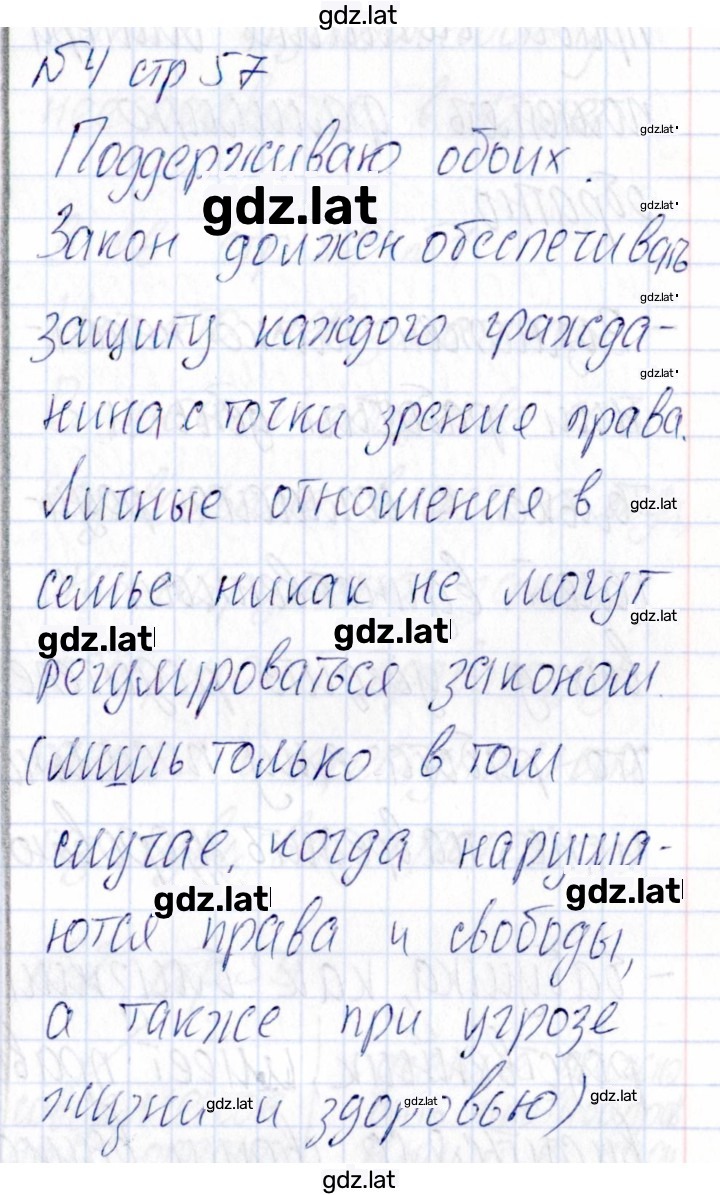 gdz.lat
№4 стр 57
Поддерживаю обоих.
gdz.lat
gdz.lat
gdz.lat
Закон должен обеспечивать
gdz.lat
защиту каждого гражда-
gdz.lat
нина с точки зрения права.
Личные отношения в
gdz.lat
семье никак не могут
gdz.lat
gdz.lat gdz.lat
регулироваться законом.
(лишь только в том
случае, когда наруша-
gdz.lat gdz.lat
ются права и свободы,
а также при угрозе
жизни и здоровью)
gdz.lat gdz.lat gdz.lat
gdz.lat